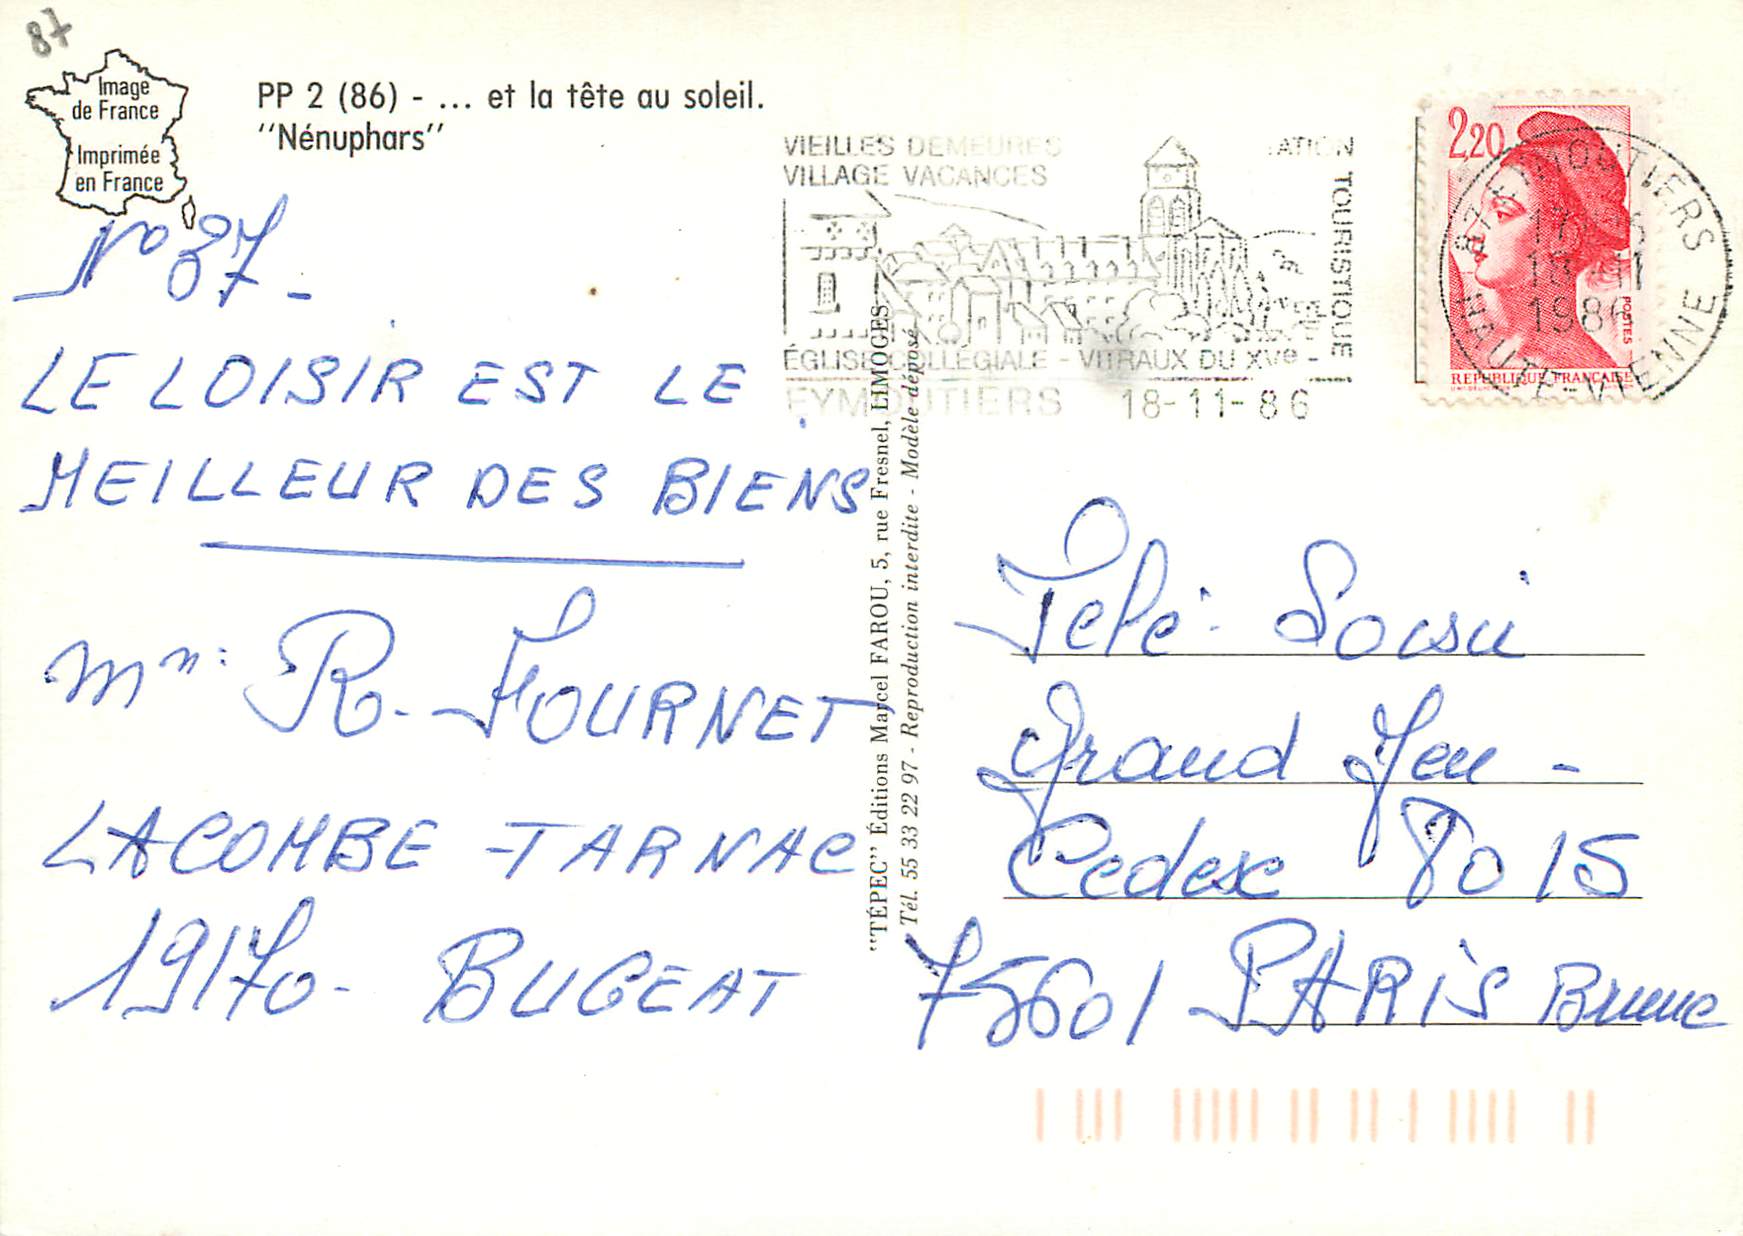 87
Image
de France
Imprimée
en France
PP 2 (86) - ... et la tête au soleil.
"Nénuphars"
N° 87 -
LE LOISIR EST LE
MEILLEUR DES BIENS
Mme: R. FOURNET
LACOMBE - TARNAC
19170 - BUGEAT
"TÉPEC" Éditions Marcel FAROU, 5, rue Fresnel, LIMOGES
Tél. 55 33 22 97 - Reproduction interdite - Modèle déposé
VIEILLES DEMEURES
VILLAGE VACANCES
ATION
TOURISTIQUE
ÉGLISE COLLÉGIALE - VITRAUX DU XVe -
EYMOUTIERS 18-11-86
2,20
POSTES
REPUBLIQUE FRANÇAISE
87 EYMOUTIERS
18-11
1986
HAUTE-VIENNE
Télé. Loisir
Grand Jeu -
Cedex 8015
75601 PARIS Brune